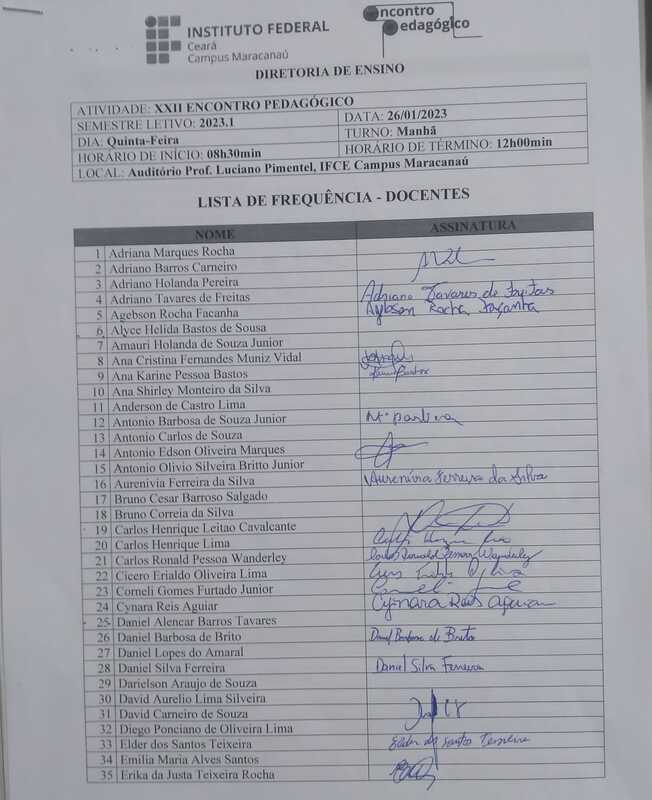 INSTITUTO FEDERAL
Ceará
Campus Maracanaú
encontro
pedagógico
DIRETORIA DE ENSINO
ATIVIDADE: XXII ENCONTRO PEDAGÓGICO
SEMESTRE LETIVO: 2023.1 DATA: 26/01/2023
DIA: Quinta-Feira TURNO: Manhã
HORÁRIO DE INÍCIO: 08h30min HORÁRIO DE TÉRMINO: 12h00min
LOCAL: Auditório Prof. Luciano Pimentel, IFCE Campus Maracanaú
LISTA DE FREQUÊNCIA - DOCENTES
NOME ASSINATURA
1 Adriana Marques Rocha
2 Adriano Barros Carneiro
3 Adriano Holanda Pereira
4 Adriano Tavares de Freitas Adriano Tavares de Freitas
5 Agebson Rocha Facanha Agebson Rocha Façanha
6 Alyce Helida Bastos de Sousa
7 Amauri Holanda de Souza Junior
8 Ana Cristina Fernandes Muniz Vidal
9 Ana Karine Pessoa Bastos
10 Ana Shirley Monteiro da Silva
11 Anderson de Castro Lima
12 Antonio Barbosa de Souza Junior
13 Antonio Carlos de Souza
14 Antonio Edson Oliveira Marques
15 Antonio Olivio Silveira Britto Junior
16 Aurenivia Ferreira da Silva Aurenívia Ferreira da Silva
17 Bruno Cesar Barroso Salgado
18 Bruno Correia da Silva
19 Carlos Henrique Leitao Cavalcante
20 Carlos Henrique Lima
21 Carlos Ronald Pessoa Wanderley Carlos Ronald Pessoa Wanderley
22 Cicero Erialdo Oliveira Lima
23 Corneli Gomes Furtado Junior
24 Cynara Reis Aguiar Cynara Reis Aguiar
25 Daniel Alencar Barros Tavares
26 Daniel Barbosa de Brito Daniel Barbosa de Brito
27 Daniel Lopes do Amaral
28 Daniel Silva Ferreira Daniel Silva Ferreira
29 Darielson Araujo de Souza
30 David Aurelio Lima Silveira
31 David Carneiro de Souza
32 Diego Ponciano de Oliveira Lima
33 Elder dos Santos Teixeira Elder dos Santos Teixeira
34 Emilia Maria Alves Santos
35 Erika da Justa Teixeira Rocha